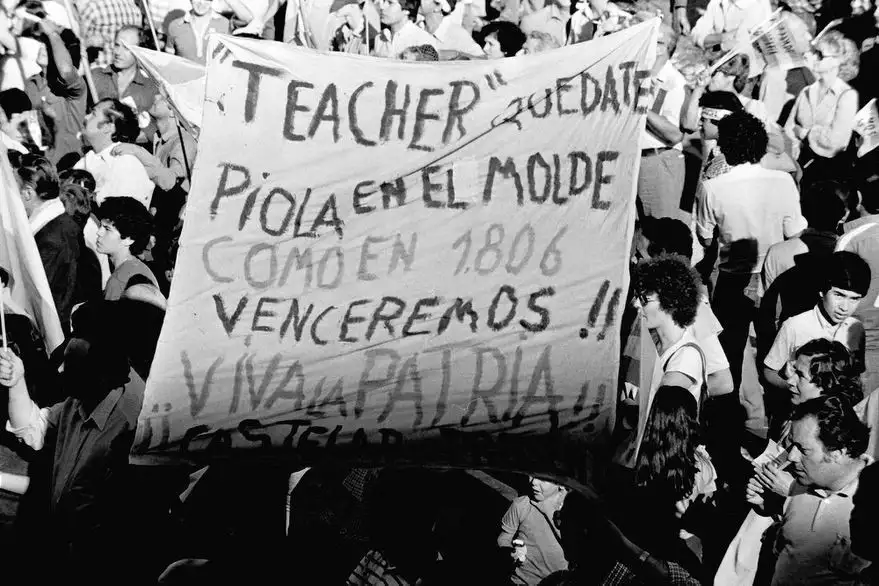 "TEACHER" QUEDATE
PIOLA EN EL MOLDE
COMO EN 1.806
VENCEREMOS !!
¡¡VIVA LA PATRIA!!
CASTELAR